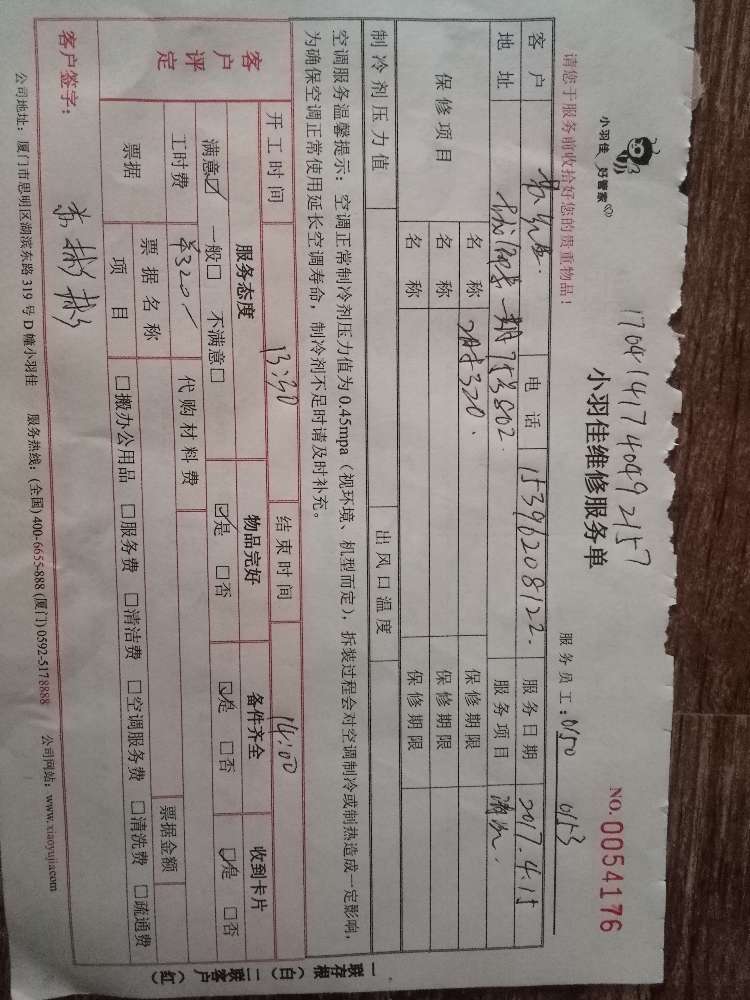 小羽佳 好管家
1704141740492157
小羽佳维修服务单
NO.0054176
请您于服务前收拾好您的贵重物品！
服务员工：0150 0153
客户 电话 15396208122. 服务日期 2017.4.15
地址 一期 753802. 服务项目
保修项目 名称 320. 保修期限
名称 保修期限
名称 保修期限
制冷剂压力值 出风口温度
空调服务温馨提示：空调正常制冷剂压力值为0.45mpa（视环境、机型而定），拆装过程会对空调制冷或制热造成一定影响，
为确保空调正常使用延长空调寿命，制冷剂不足时请及时补充。
开工时间 13:30 结束时间 14:00
客户评定 服务态度 物品完好 备件齐全 收到卡片
满意☑ 一般□ 不满意□ ☑是 □否 ☑是 □否 ☑是 □否
工时费 ¥320 代购材料费
票据 票据名称 票据金额
项目 □搬办公用品 □服务费 □清洁费 □空调服务费 □清洗费 □疏通费
客户签字：
公司地址：厦门市思明区湖滨东路319号D幢小羽佳 服务热线：(全国)400-6655-888 (厦门)0592-5178888 公司网站：www.xiaoyujia.com
一联存根（白）二联客户（红）